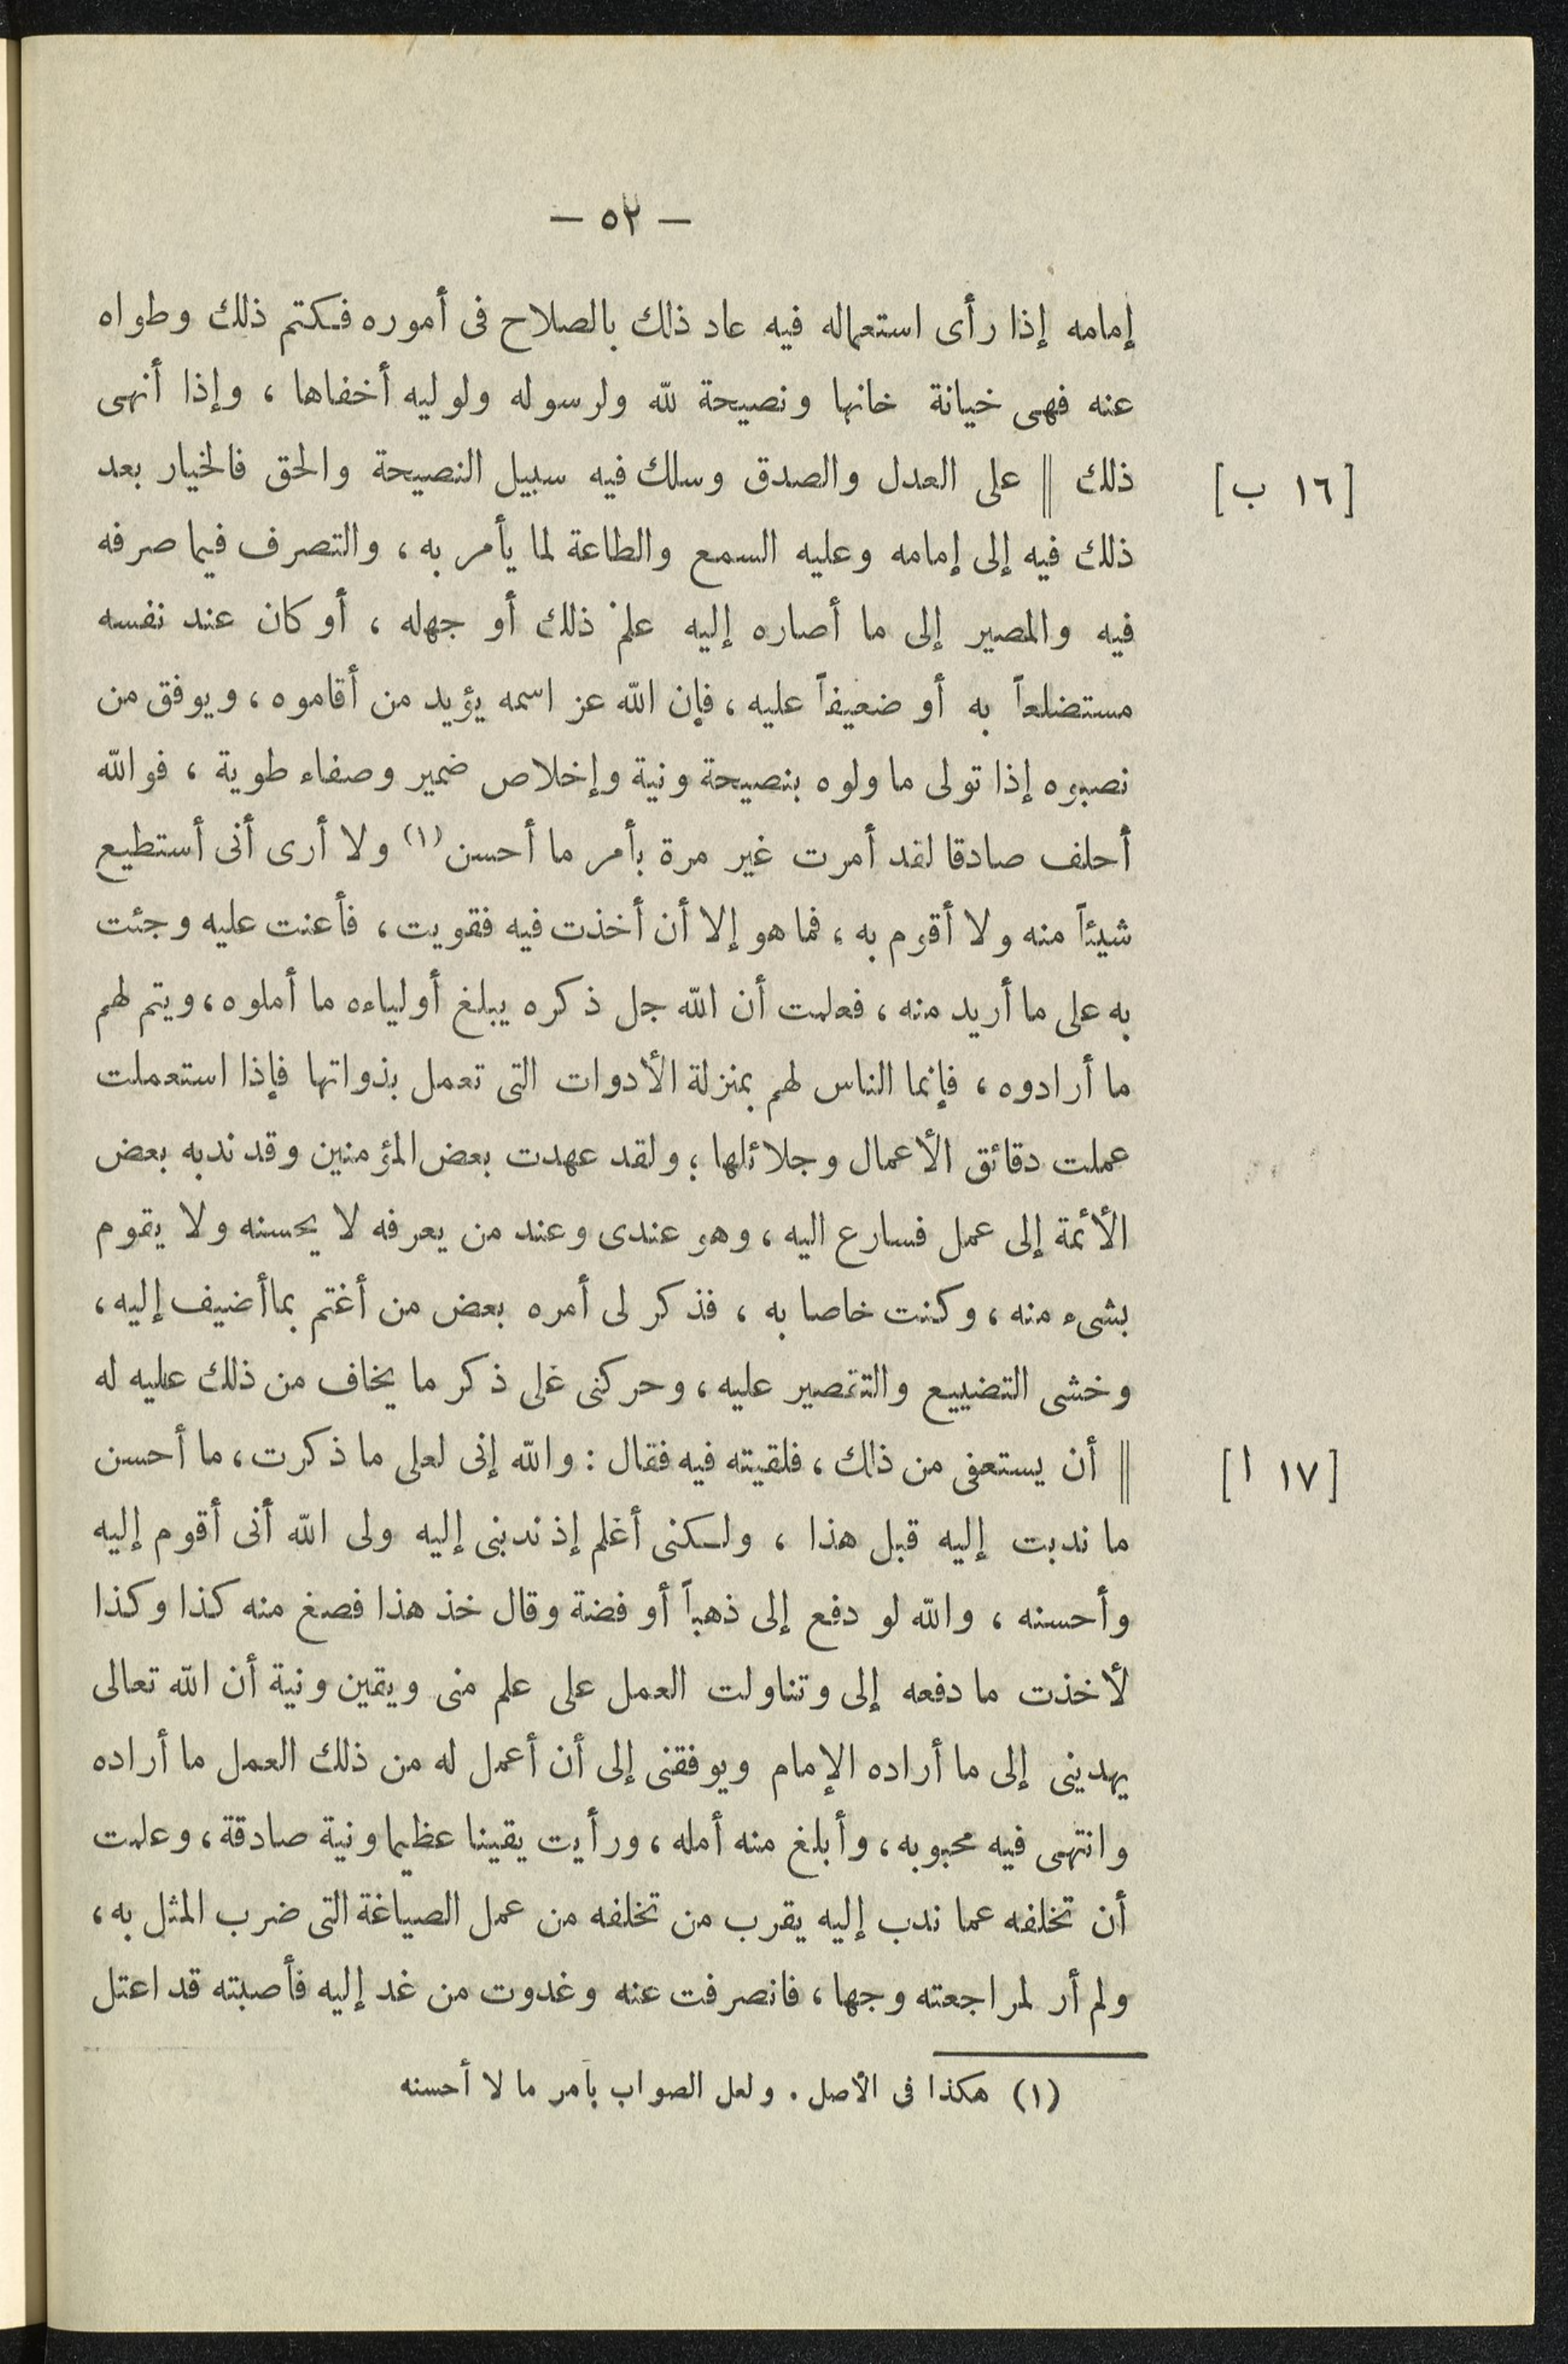 — ٥٢ —
إمامه إذا رأى استعماله فيه عاد ذلك بالصلاح فى أموره فكتم ذلك وطواه
عنه فهى خيانة خانها ونصيحة لله ولرسوله ولوليه أخفاها ، وإذا أنهى
[١٦ ب] ذلك || على العدل والصدق وسلك فيه سبيل النصيحة والحق فالخيار بعد
ذلك فيه إلى إمامه وعليه السمع والطاعة لما يأمر به ، والتصرف فيما صرفه
فيه والمصير إلى ما أصاره إليه علم ذلك أو جهله ، أو كان عند نفسه
مستضلعاً به أو ضعيفاً عليه ، فإن الله عز اسمه يؤيد من أقاموه ، ويوفق من
نصبوه إذا تولى ما ولوه بنصيحة ونية وإخلاص ضمير وصفاء طوية ، فوالله
أحلف صادقا لقد أمرت غير مرة بأمر ما أحسن (١) ولا أرى أنى أستطيع
شيئاً منه ولا أقوم به ، فما هو إلا أن أخذت فيه فقويت ، فأعنت عليه وجئت
به على ما أريد منه ، فعلمت أن الله جل ذكره يبلغ أولياءه ما أملوه ، ويتم لهم
ما أرادوه ، فإنما الناس لهم بمنزلة الأدوات التى تعمل بذواتها فإذا استعملت
عملت دقائق الأعمال وجلائلها ؛ ولقد عهدت بعض المؤمنين وقد ندبه بعض
الأئمة إلى عمل فسارع اليه ، وهو عندى وعند من يعرفه لا يحسنه ولا يقوم
بشىء منه ، وكنت خاصا به ، فذكر لى أمره بعض من أغتم بما أضيف إليه ،
وخشى التضييع والتقصير عليه ، وحركنى على ذكر ما يخاف من ذلك عليه له
[١٧ ا] || أن يستعفى من ذلك ، فلقيته فيه فقال : والله إنى لعلى ما ذكرت ، ما أحسن
ما ندبت إليه قبل هذا ، ولكنى أعلم إذ ندبنى إليه ولى الله أنى أقوم إليه
وأحسنه ، والله لو دفع إلى ذهباً أو فضة وقال خذ هذا فصغ منه كذا وكذا
لأخذت ما دفعه إلى وتناولت العمل على علم منى ويقين ونية أن الله تعالى
يهدينى إلى ما أراده الإمام ويوفقنى إلى أن أعمل له من ذلك العمل ما أراده
وانتهى فيه محبوبه ، وأبلغ منه أمله ، ورأيت يقينا عظيما ونية صادقة ، وعلمت
أن تخلفه عما ندب إليه يقرب من تخلفه من عمل الصياغة التى ضرب المثل به ،
ولم أر لمراجعته وجها ، فانصرفت عنه وغدوت من غد إليه فأصبته قد اعتل
(١) هكذا فى الأصل . ولعل الصواب بأمر ما لا أحسنه